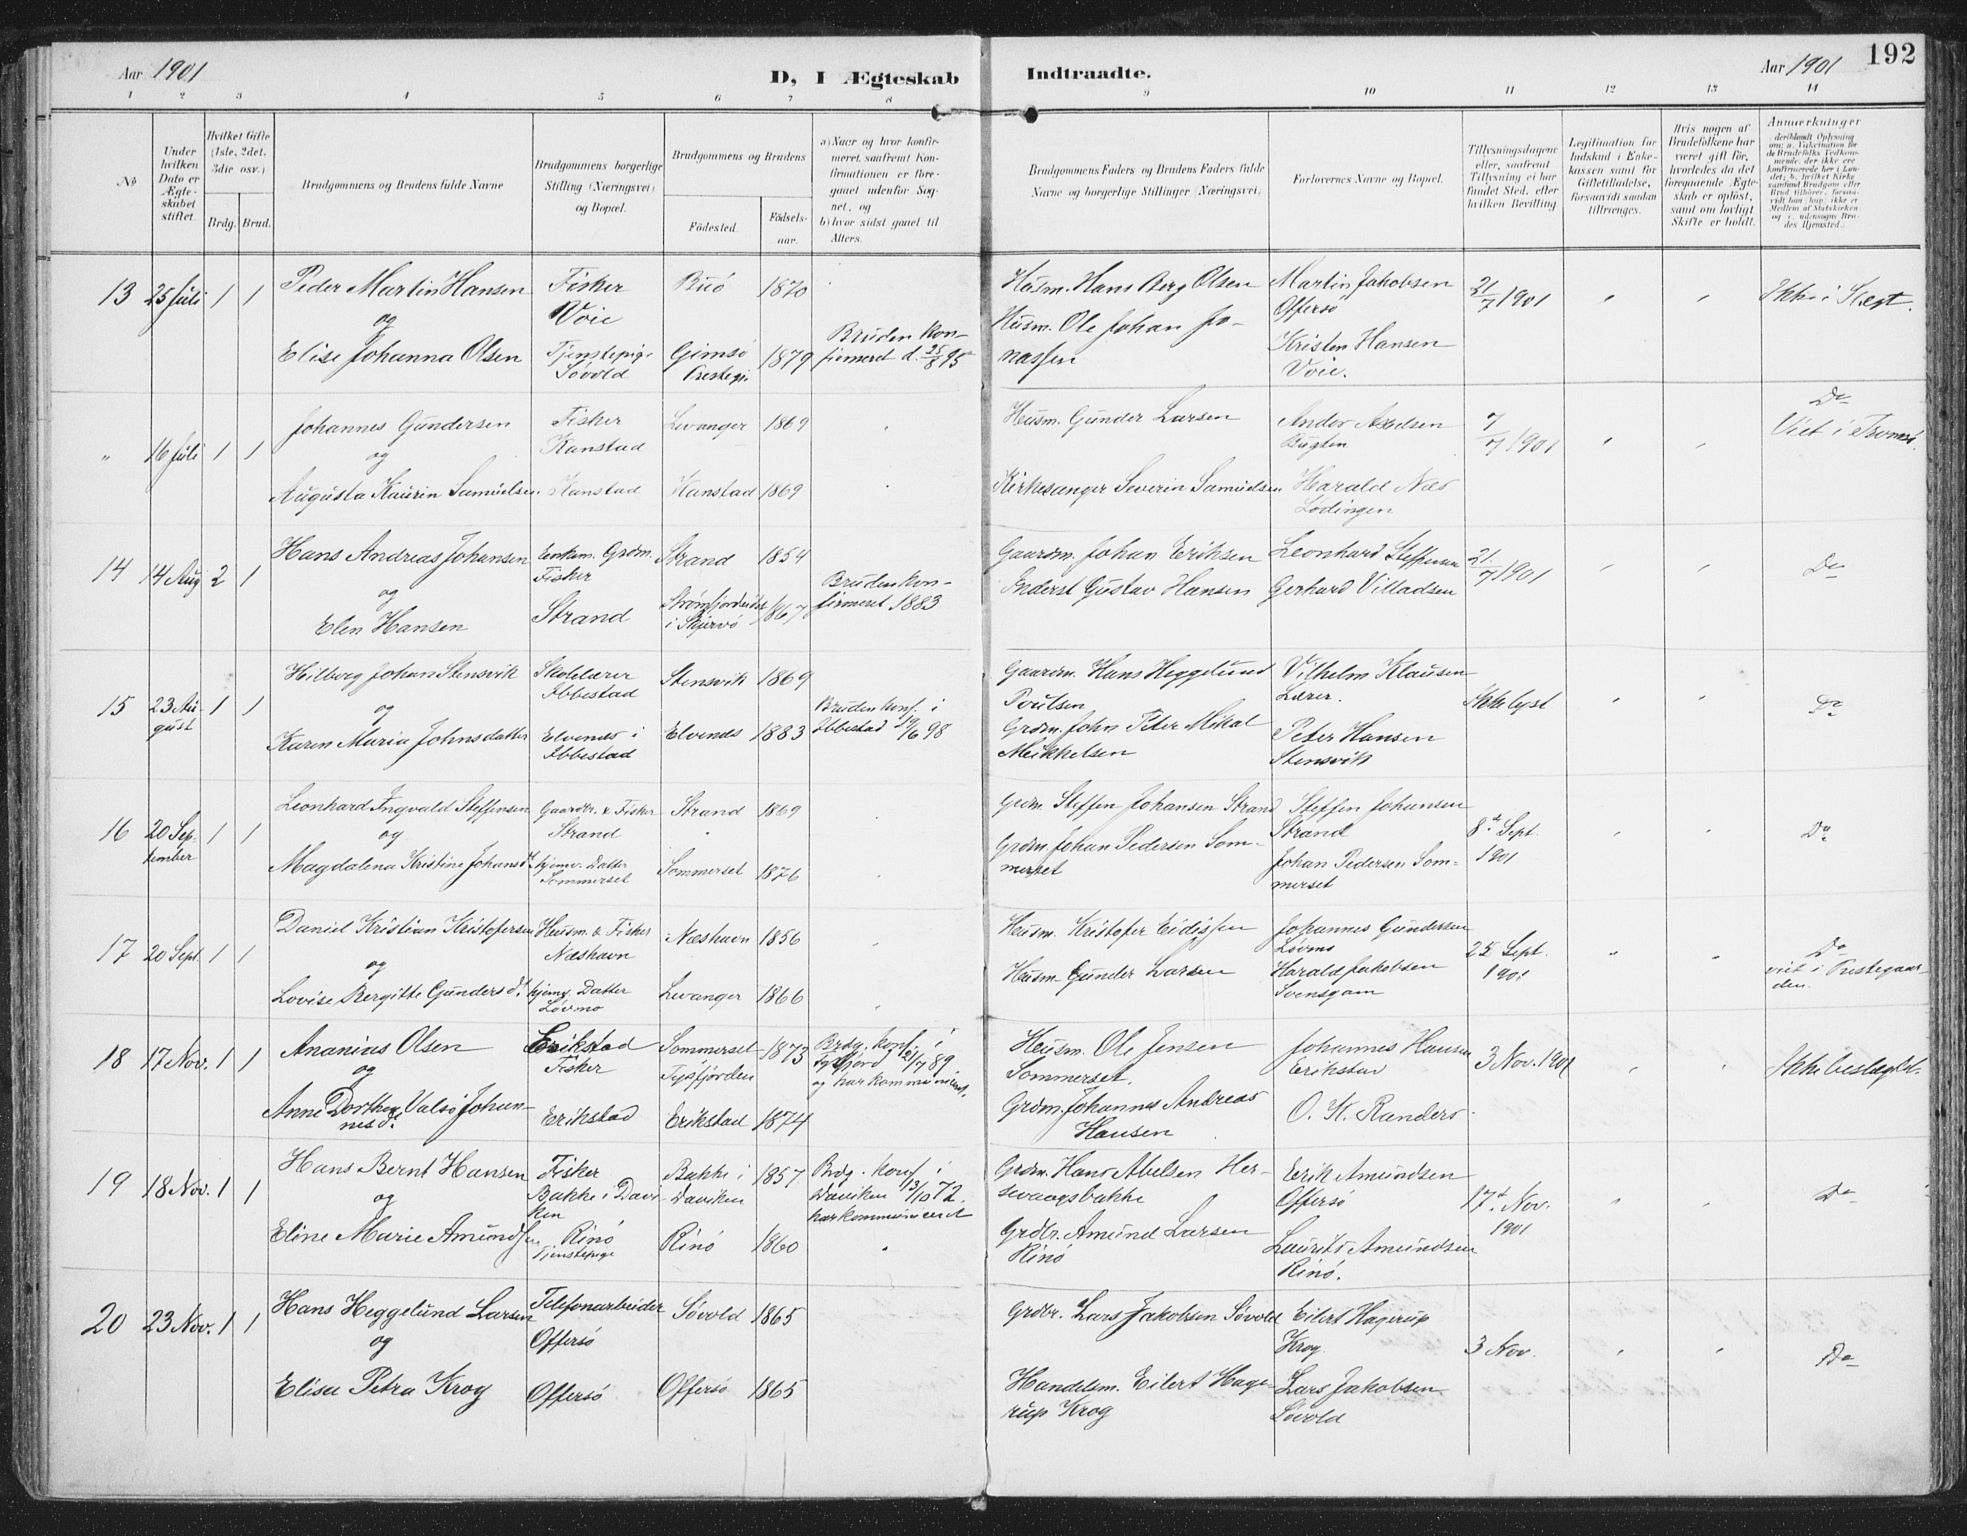 Aar 1901
D, I Ægteskab Indtraadte.
Aar 1901
192
1 2 3 4 5 6 7 8 9 10 11 12 13 14
No
Under hvilken Dato er Ægteskabet stiftet.
Hvilket Gifte (1ste, 2det, 3die osv.)
Brdg. Brud.
Brudgommens og Brudens fulde Navne
Brudgommens borgerlige Stilling (Næringsvei) og Bopæl.
Brudgommens og Brudens
Födested.
Födselsaar.
a) Naar og hvor konfirmeret, saafremt Konfirmationen er foregaaet udenfor Sognet, og
b) hvor sidst gaaet til Alters.
Brudgommens Faders og Brudens Faders fulde Navne og borgerlige Stillinger (Næringsvei)
Forlovernes Navne og Bopæl.
Tillysningsdagene eller, saafremt Tillysning ei har fundet Sted, efter hvilken Bevilling
Legitimation for Indskud i Enkekassen samt for Giftetilladelse, forsaavidt saadan tiltrænges.
Hvis nogen af Brudefolkene har været gift för, hvorledes da det foregaaende Ægteskab er oplöst, samt om lovligt Skifte er holdt.
Anmerkninger
13 25 Juli 1 1 Peder Martin Hansen Fisker Buö 1870 Husm. Hans Berg Olsen Martin Jakobsen 21/7 1901 Ikke i Slegt.
og Voie Offersö
Elise Johanna Olsen Tjenstepige Gimsö 1879 Bruden konfirmeret d. 25/8 95 Husm. Ole Johan Jonassen Kristen Hansen
Sövold Prestegj. Voie.
" 16 Juli 1 1 Johannes Gundersen Fisker Levanger 1869 Husm. Gunder Larsen Andor Axelsen 7/7 1901 Do
og Kanstad Bugten Viet i Tromsö
Augusta Kaurin Samuelsen Kanstad Kanstad 1869 Kirkesanger Severin Samuelsen Harald Næs
Lödingen
14 14 Aug 2 1 Hans Andreas Johansen Enkem. Grdm. Strand 1854 Gaardm. Johan Eriksen Leonhard Steffensen 21/7 1901 Do
og Fisker Bruden konfirmeret 1883 Inderst Gustav Hansen Gerhard Villadsen
Elen Hansen Strand i Skjervö 1867
15 23 August 1 1 Hilberg Johan Stensvik Skolelærer Stensvik 1869 Gaardm. Hans Heggelund Poulsen Vilhelm Klausen Ikke lyst Do
og Ibbestad Bruden konf. i Ibbestad 19/6 98 Lærer.
Karen Maria Johnsdatter Elvenes i Elvenes 1883 Grdm. John Peter Mikal Mikkelsen Peter Hansen
Ibbestad Stensvik
16 20 September 1 1 Leonhard Ingvald Steffensen Gaardbr. & Fisker Strand 1869 Grdm. Steffen Johansen Strand Steffen Johansen 8de Sept. 1901 Do
og Strand Strand
Magdalena Kristine Johansdt. hjemv. Datter Sommerset 1876 Grdm. Johan Pedersen Sommerset Johan Pedersen Sommerset
Sommerset
17 20 Sept. 1 1 Daniel Kristian Kristofersen Husm. & Fisker Næshavn 1856 Husm. Kristofer Eidissen Johannes Gundersen 25 Sept. 1901 Do
og Næshavn Lövmo viet i Prestegaarden.
Lovise Bergitte Gundersdt. hjemv. Datter Levanger 1866 Husm. Gunder Larsen Harald Jakobsen
Lövmo Svensgam
18 17 Nov. 1 1 Ananias Olsen Erikstad Sommerset 1873 Brdg. konf. i Husm. Ole Jensen Johannes Hansen 3 Nov. 1901 Ikke beslægtet.
og Fisker Tysfjorden Tysfjord 21/7 89 og har kommunicert. Sommerset. Erikstad
Anne Dorthea Valsö Johannesdt. Erikstad Erikstad 1874 Grdm. Johannes Andreas Hansen O. K. Randers
19 18 Nov. 1 1 Hans Bernt Hansen Fisker Bakke i 1857 Brdg. konf. i Grdm. Hans Abelsen Hersevaagsbakke Erik Amundsen 17de Nov. 1901 Do
og Bakke i Daviken Daviken Daviken 13/10 72. har kommuniceret Offersö
Eline Marie Amundsen Rinö Rinö 1860 Grdbr. Amund Larsen Laurits Amundsen
Tjenstepige Rinö Rinö.
20 23 Nov. 1 1 Hans Heggelund Larsen Telefonarbeider Sövold 1865 Grdbr. Lars Jakobsen Sövold Eilert Hagerup 3 Nov. Do
og Offersö Krog
Elisa Petra Krog Offersö Offersö 1865 Handelsm. Eilert Hagerup Krog Lars Jakobsen
Sövold